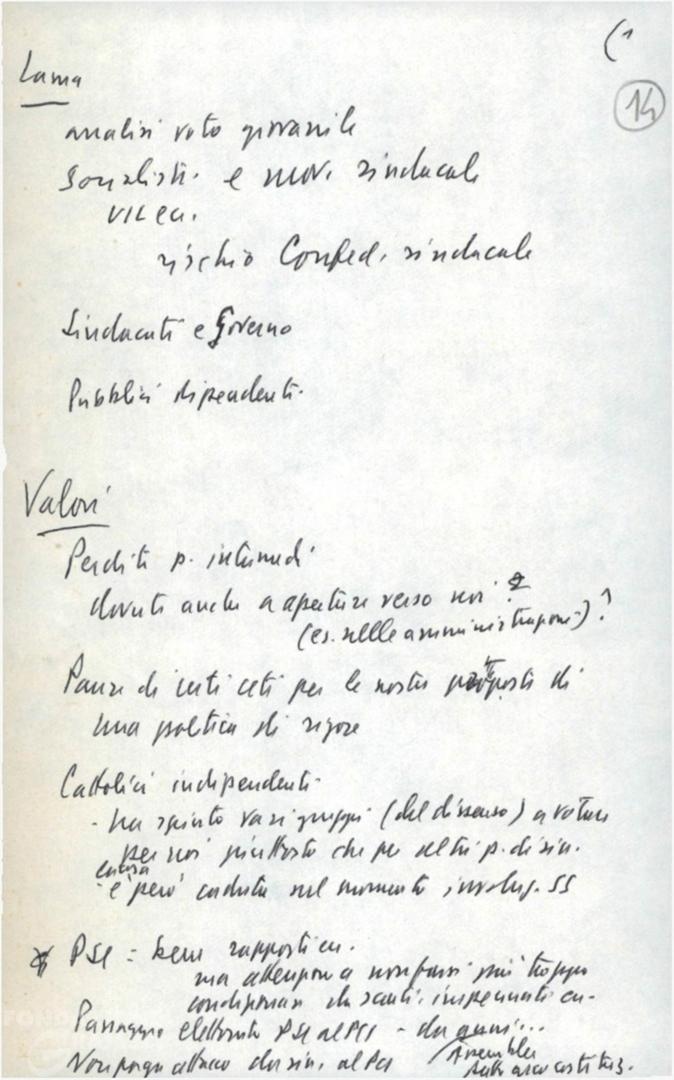 (1
14
Lama
analisi voto giovanile
Socialisti e mov. sindacale
rischio Confed. sindacale
Sindacati e Governo
Pubblici dipendenti.
Valori
Perdite p. intermedi
dovute anche a aperture verso noi?
(es. nelle amministrazioni)?
Paure di certi ceti per le nostre proposte di
una politica di rigore
Cattolici indipendenti.
- ha spinto vari gruppi (del dissenso) a votare
per noi piuttosto che per altri p. di sin.
- è però caduta nel momento
PSI = bene rapporti
ma attenzione a non farsi più troppo
condizionare da
Passaggio elettorato PSI al PCI - da anni...
Non paga attacco da sin. al PCI